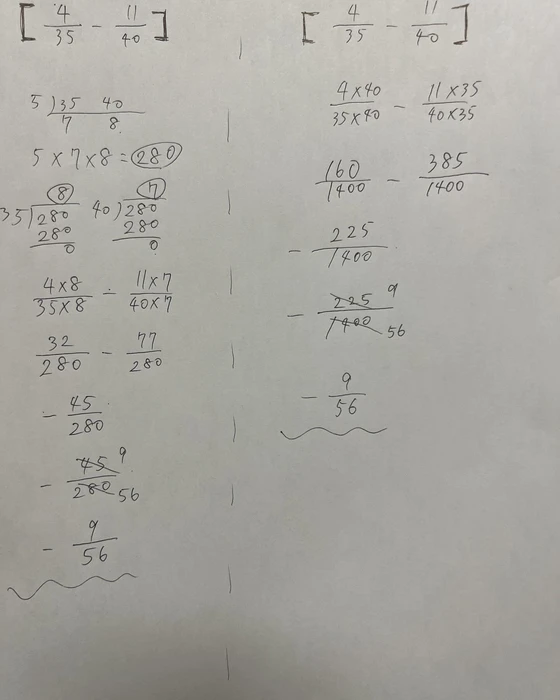 [ 4/35 - 11/40 ]
5 ) 35 40
7 8
5 × 7 × 8 = 280
8 7
35 ) 280 40 ) 280
280 280
0 0
4×8/35×8 - 11×7/40×7
32/280 - 77/280
- 45/280
- 45/280 9 56
- 9/56
[ 4/35 - 11/40 ]
4×40/35×40 - 11×35/40×35
160/1400 - 385/1400
- 225/1400
- 225/1400 9 56
- 9/56